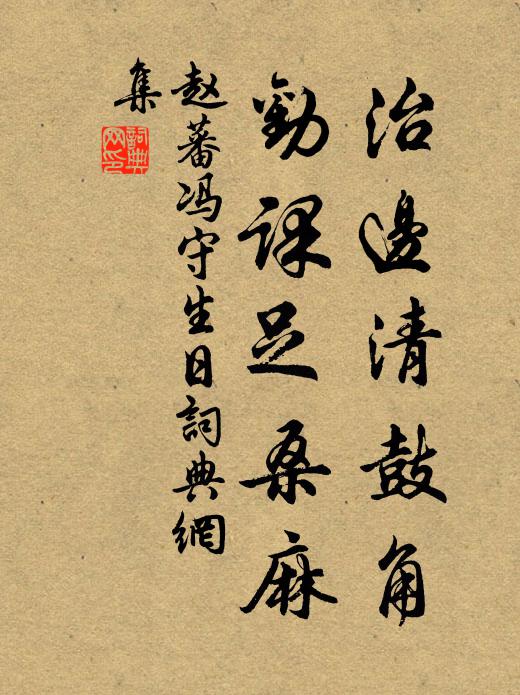 治邊清鼓角
勸課足桑麻
赵蕃冯守生日詞典網
集
詞典网印